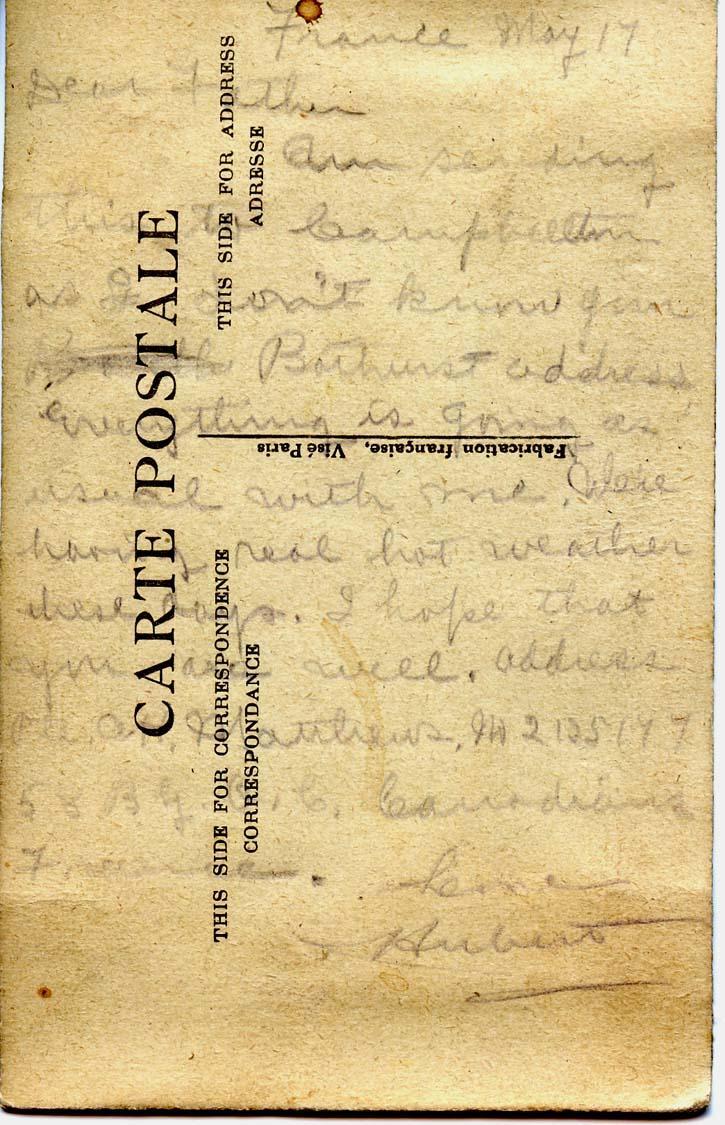 France May 17
Dear Father
Am sending
this to Campbellton
as I don't know your
Bathurst address
everything is going as
usual with me. We're
having real hot weather
these days. I hope that
you are well. address
Pte. A. H. Matthews,
5 Canadians
France.
Love
Hubert
CARTE POSTALE
THIS SIDE FOR CORRESPONDENCE
CORRESPONDANCE
THIS SIDE FOR ADDRESS
ADRESSE
Fabrication française, Visé Paris